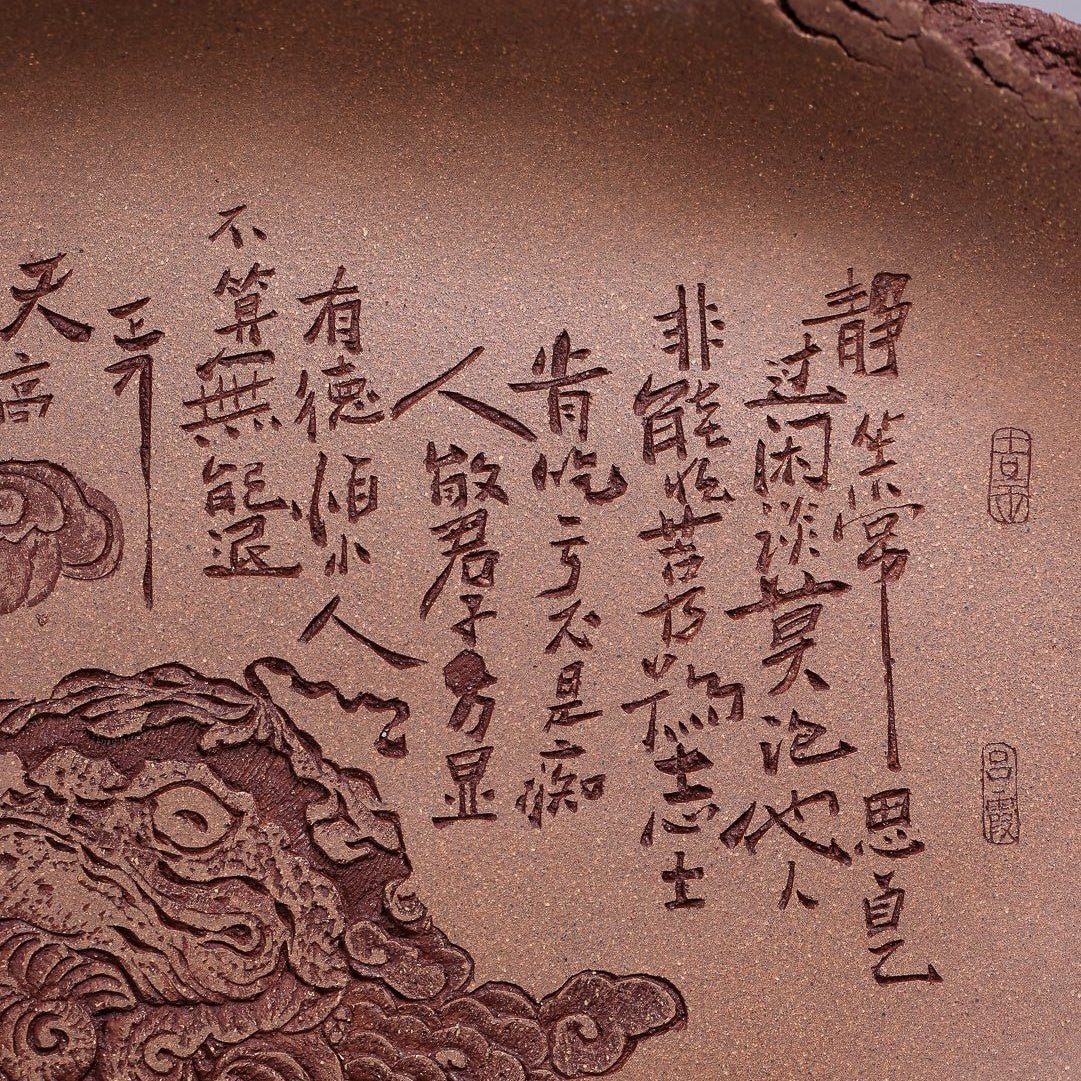 吕霞
静坐常思自己
过闲谈莫论他人
非能吃苦方為志士
肯吃亏不是痴
人敬君子方显
有德怕小人
不算無能退
一步
天高